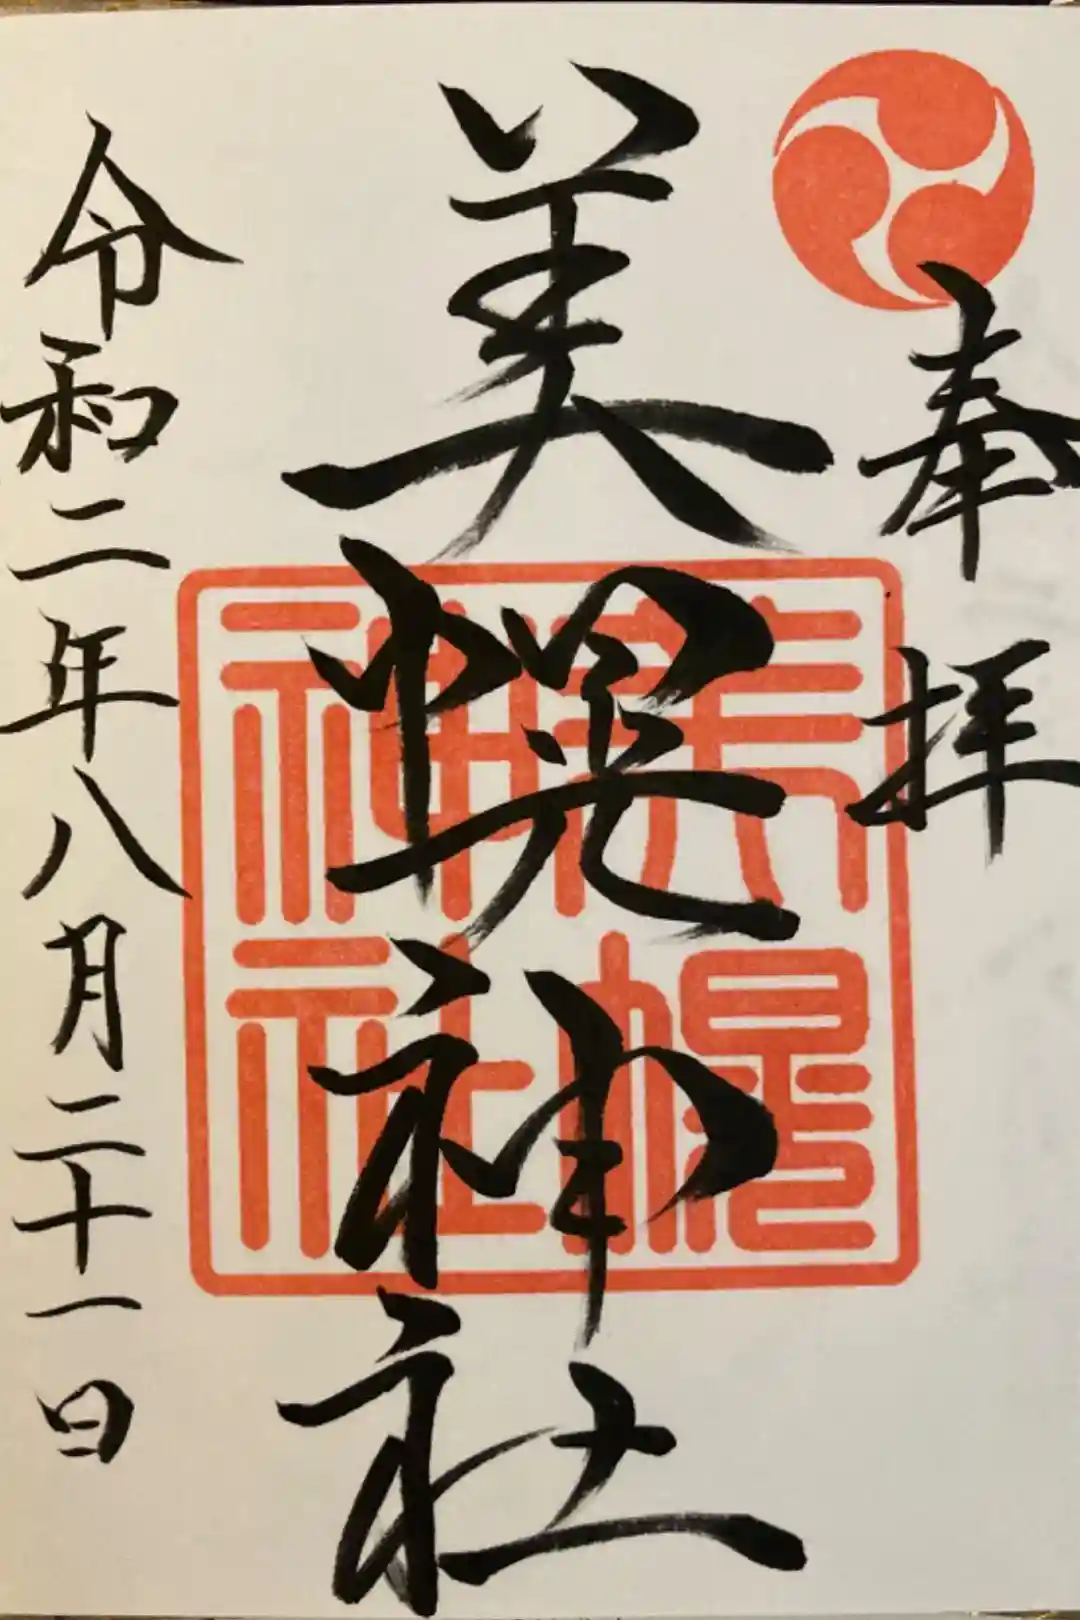 奉拝
美幌神社
令和二年八月二十一日
美幌
神社